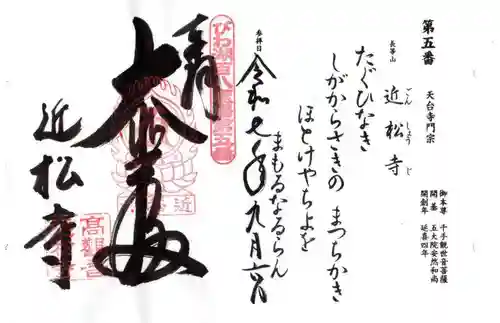 第五番
天台寺門宗
御本尊 千手観世音菩薩
開基 五大院安然和尚
開創年 延喜四年
長等山
近松寺
ごんしょうじ
たぐひなき
しがからさきの まつちかき
ほとけやちよを
まもるなるらん
参拝日
令和七年九月六日
奉拝
びわ湖百八霊場第五番
大悲殿
近松寺
高観音